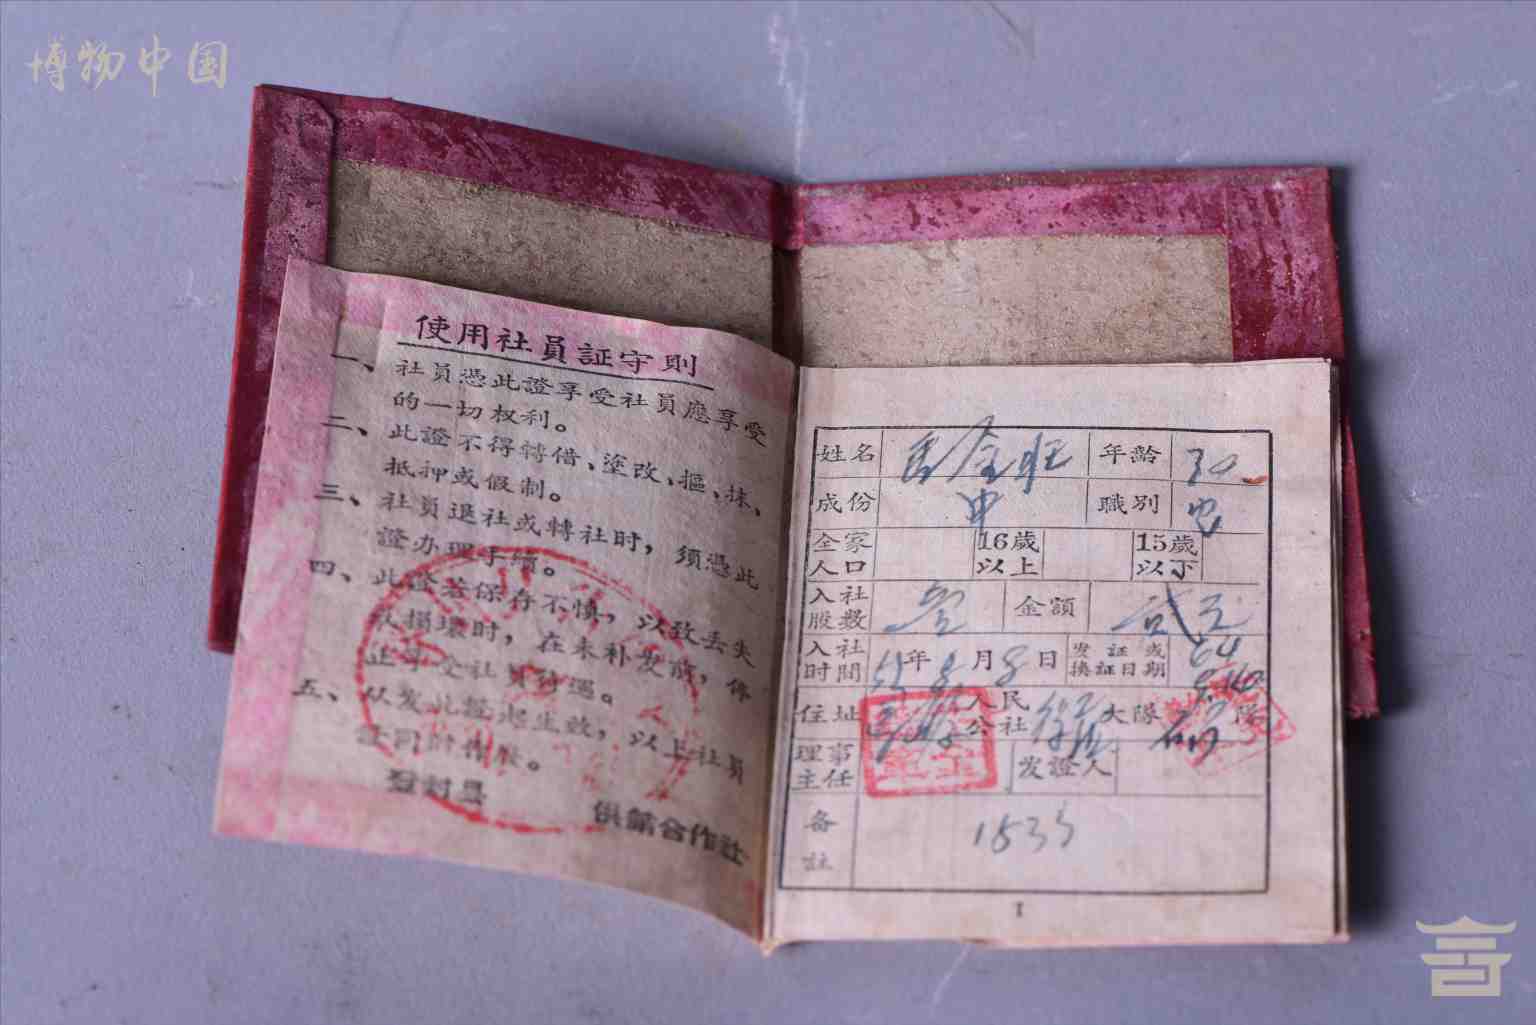 博物中国
使用社員証守則
一、社員憑此證享受社員應享受
的一切权利。
二、此證不得轉借、塗改、摳、抹、
抵押或假制。
三、社員退社或轉社时，須憑此
證办理手續。
四、此證若保存不慎，以致丢失
或損壞时，在未补发前，停
止享受社員待遇。
五、以发此證起生效，以上社員
證同时作廢。
登封县
供銷合作社
姓名 金旺 年齡 30
成份 中 職別 农
全家人口 16歲以上 15歲以下
入社股数 壹 金額 弍元
入社时間 年 月 8日 发証或換証日期 64
住址 人民公社 大隊 隊
理事主任 发證人
备註 1535
1